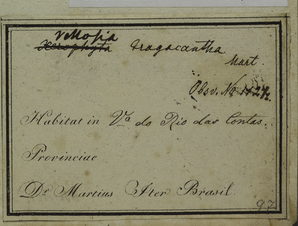 Vellosia
Xerophyta Tragacantha
Mart.
Obsv. No.
Habitat in Va do Rio das Contas.
Provinciae
Dr. Martius Iter Brasil.
97